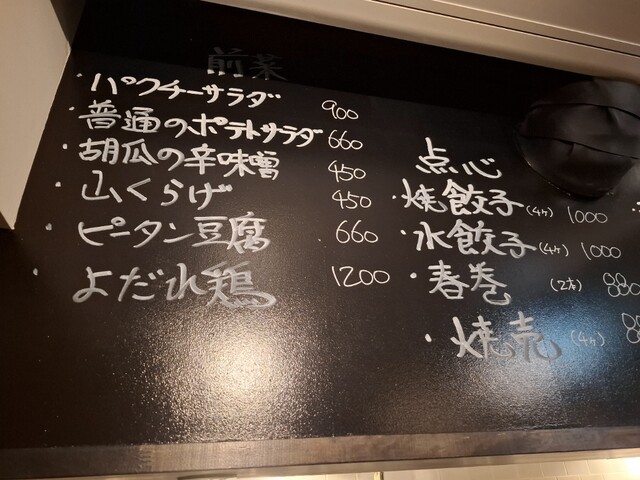 前菜
・パクチーサラダ 900
・普通のポテトサラダ 660
・胡瓜の辛味噌 450
・山くらげ 450
・ピータン豆腐 660
・よだれ鶏 1200
点心
・焼餃子(4ヶ) 1000
・水餃子(4ヶ) 1000
・春巻(2本) 880
・焼売(4ヶ)